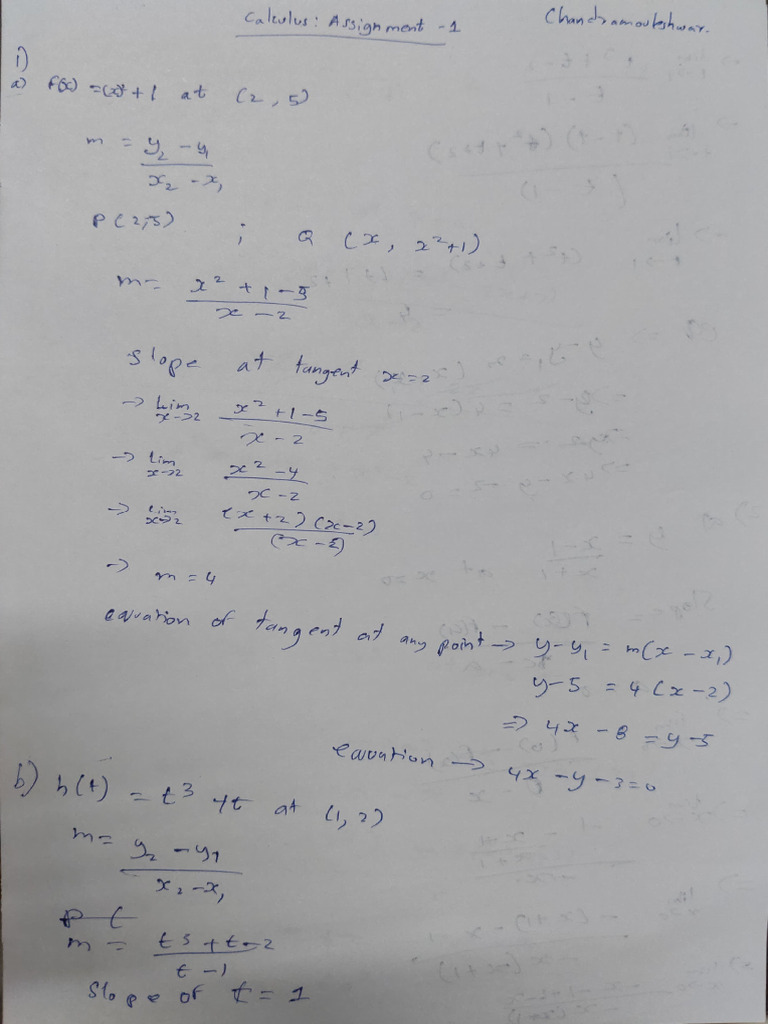 Calculus: Assignment -1
Chandramouleshwar.
1)
a) f(x) =(x)²+1 at (2,5)
m = y₂ - y₁
x₂ - x₁
P(2,5) ; Q (x, x²+1)
m = x² + 1 - 5
x - 2
Slope at tangent x=2
→ lim x→2 x² +1-5
x - 2
→ lim x→2 x² - 4
x - 2
→ lim x→2 (x+2) (x-2)
(x-2)
→ m = 4
equation of tangent at any point → y-y₁ = m(x - x₁)
y-5 = 4 (x-2)
⇒ 4x - 8 = y-5
equation → 4x - y - 3=0
b) h(t) = t³ +t at (1,2)
m = y₂ - y₁
x₂ - x₁
P (
m = t³ + t - 2
t - 1
Slope of t = 1